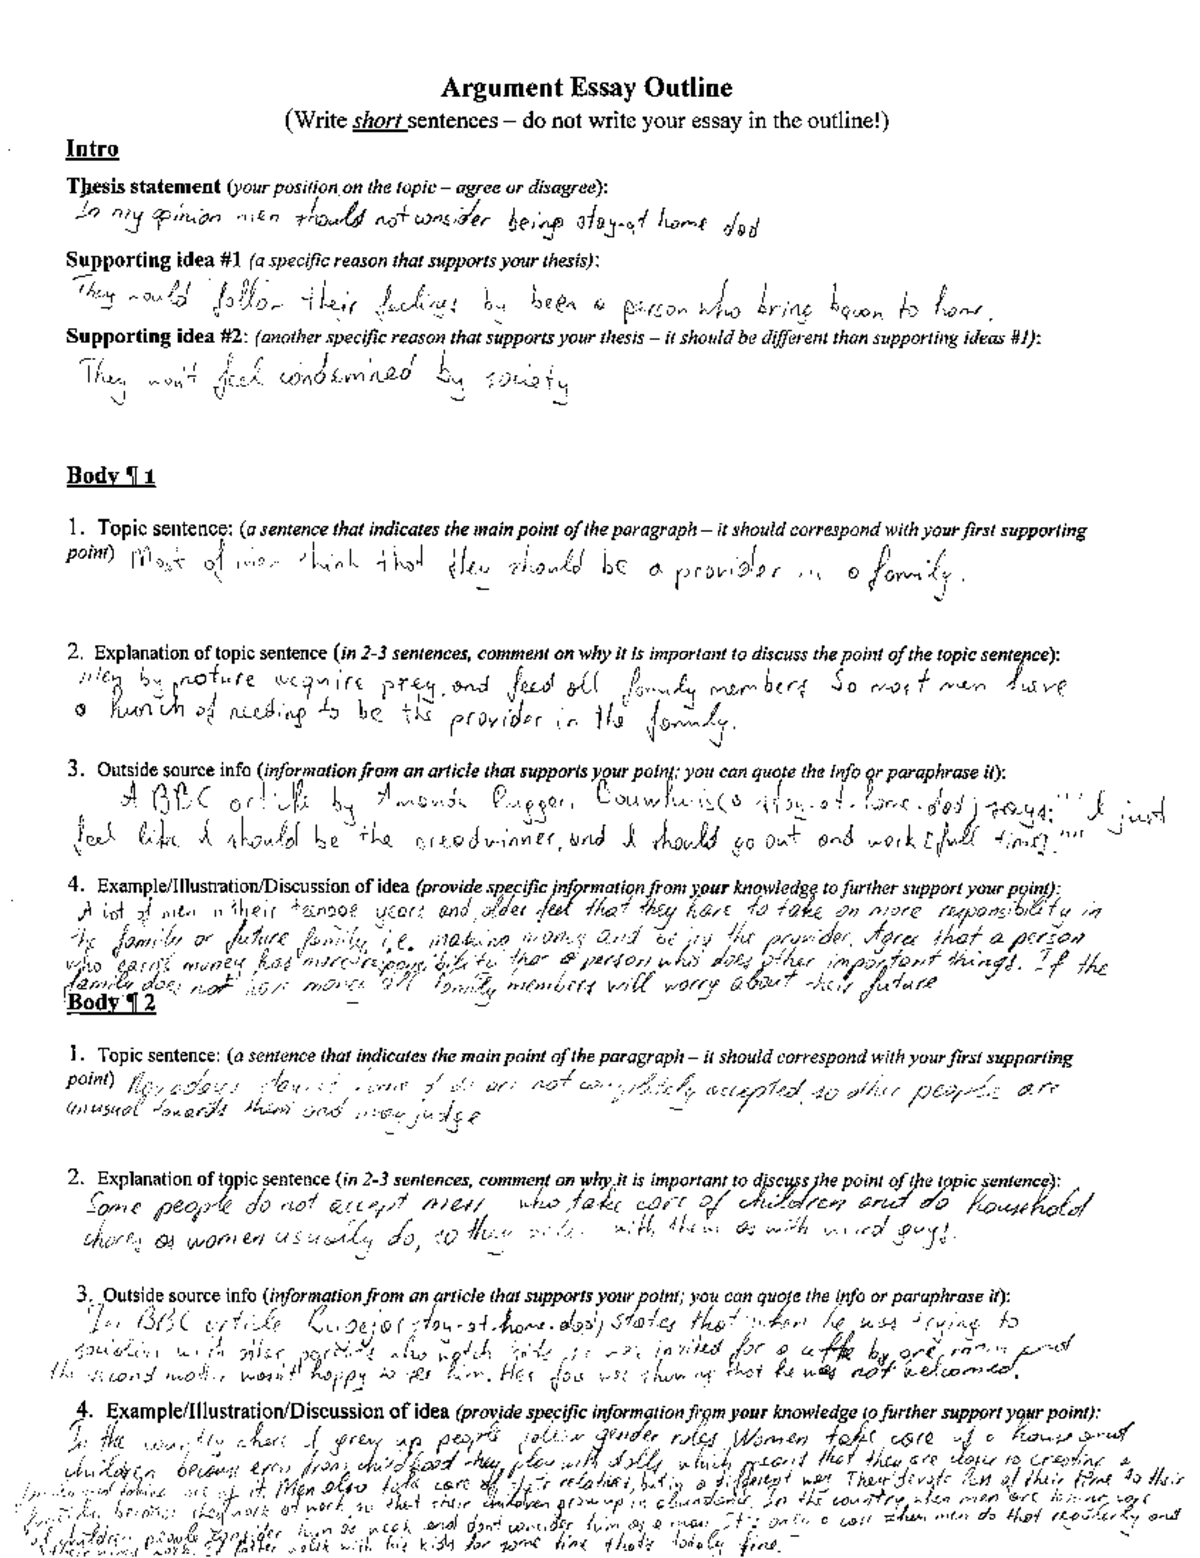 Argument Essay Outline
(Write short sentences – do not write your essay in the outline!)
Intro
Thesis statement (your position on the topic – agree or disagree):
In my opinion men should not consider being stay-at home dad
Supporting idea #1 (a specific reason that supports your thesis):
They would follow their feelings by been a person who bring bacon to home.
Supporting idea #2: (another specific reason that supports your thesis – it should be different than supporting ideas #1):
They won't feel condemined by society
Body ¶ 1
1. Topic sentence: (a sentence that indicates the main point of the paragraph – it should correspond with your first supporting
point) Most of men think that they should be a provider in a family.
2. Explanation of topic sentence (in 2-3 sentences, comment on why it is important to discuss the point of the topic sentence):
Men by nature acquire prey, and feed all family members. So most men have
a hunch of needing to be the provider in the family.
3. Outside source info (information from an article that supports your point; you can quote the info or paraphrase it):
A BBC article by Amanda (a stay-at-home-dad) says: "'I just
feel like I should be the breadwinner, and I should go out and work [full time].'"
4. Example/Illustration/Discussion of idea (provide specific information from your knowledge to further support your point):
A lot of men in their teenage years and older feel that they have to take on more responsibility in
the family or future family, i.e. making money and being the provider. Agree that a person
who earns money has more responsibility than a person who does other important things. If the
family does not have money all family members will worry about their future
Body ¶ 2
1. Topic sentence: (a sentence that indicates the main point of the paragraph – it should correspond with your first supporting
point) Nowadays home are not completely accepted, so other people are
unusual towards them and may judge
2. Explanation of topic sentence (in 2-3 sentences, comment on why it is important to discuss the point of the topic sentence):
Some people do not accept men, who take care of children and do household
chores as women usually do, so they with them as with weird guys.
3. Outside source info (information from an article that supports your point; you can quote the info or paraphrase it):
In BBC article (stay-at-home-dad) states that when he was trying to
with other parents who watch kids, was invited for a coffe by one mom and
the second mother wasn't happy to see him. Her face was showing that he was not welcomed.
4. Example/Illustration/Discussion of idea (provide specific information from your knowledge to further support your point):
In the country where I grew up people follow gender rules. Women take care of a house and
children because even from childhood they play with dolls which meant that they are closer to creating a
and taking care of it. Men also take care of their relatives, but in a different way. They devote less of their time to their
because they work at work, so that their children grow up in abundance. In the country, when men are
of children people consider him as weak and don't consider him as a man. It's only a case when men do that regularly and
with his kids for some time that's totaly fine.